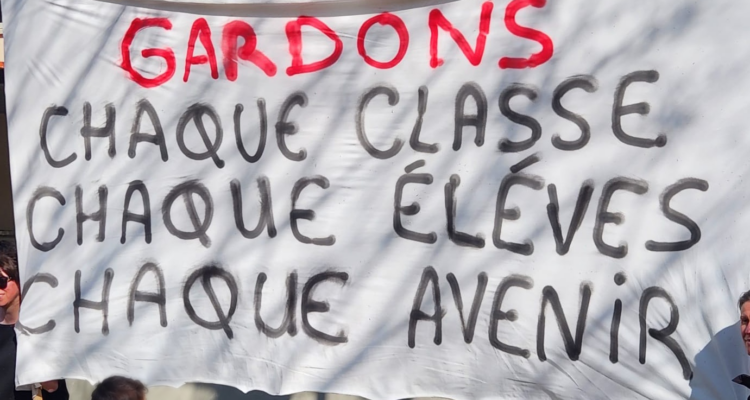 GARDONS
CHAQUE CLASSE
CHAQUE ÉLÉVES
CHAQUE AVENiR